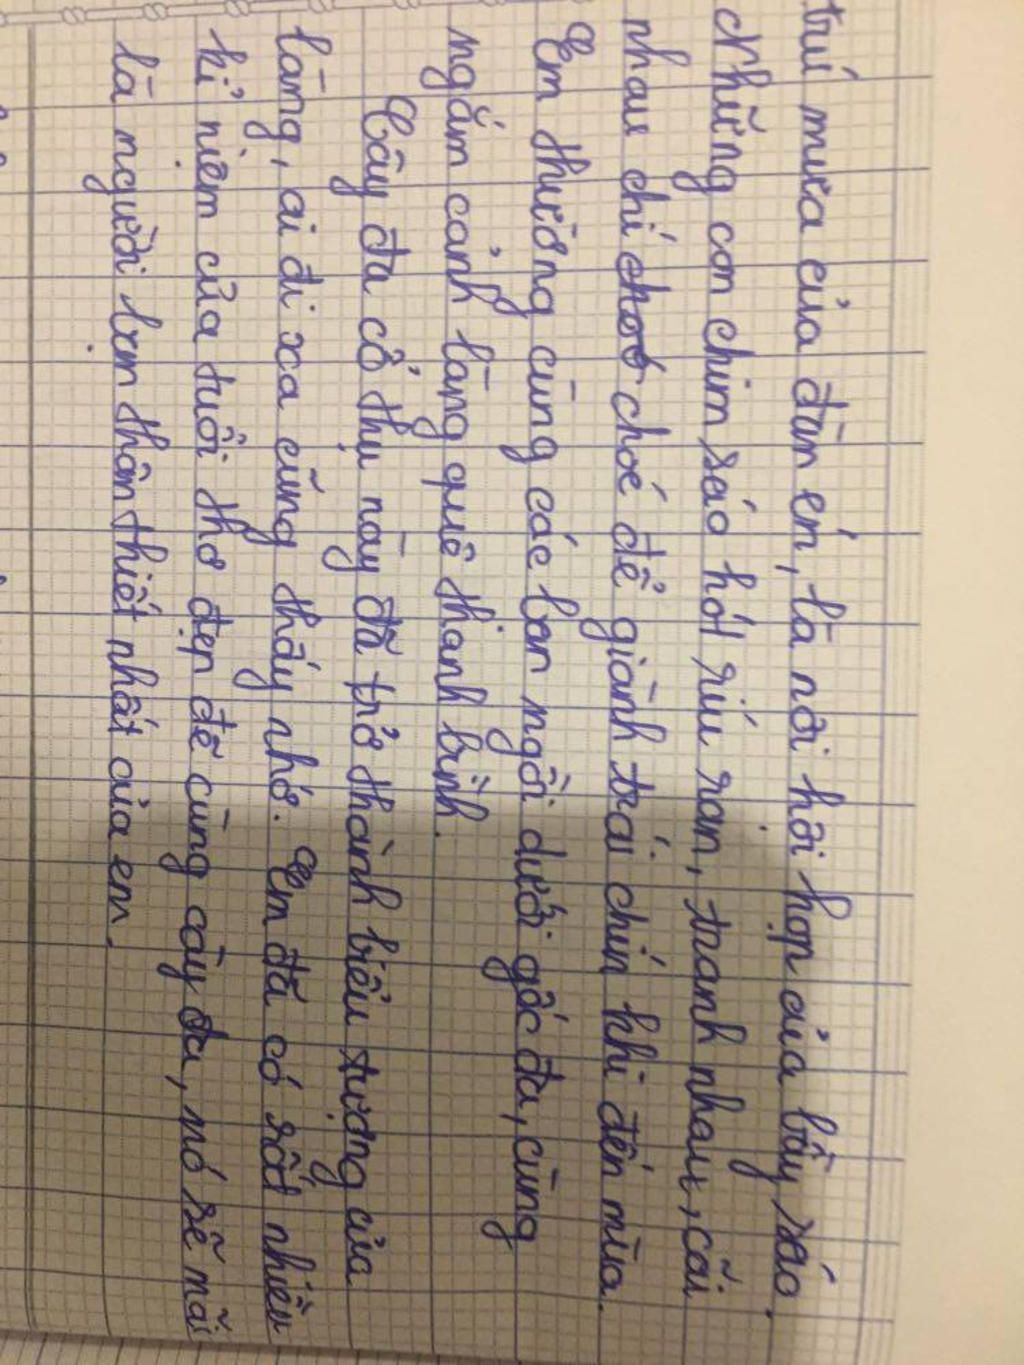 trú mưa của đàn én, là nơi hội họp của bầy sáo.
Những con chim sáo hót ríu ran, tranh nhau, cãi
nhau chí choé để giành trái chín khi đến mùa.
Em thường cùng các bạn ngồi dưới gốc đa, cùng
ngắm cảnh làng quê thanh bình.
Cây đa cổ thụ này đã trở thành biểu tượng của
làng, ai đi xa cũng thấy nhớ. Em đã có rất nhiều
kỉ niệm của tuổi thơ đẹp đẽ cùng cây đa, nó sẽ mãi
là người bạn thân thiết nhất của em.